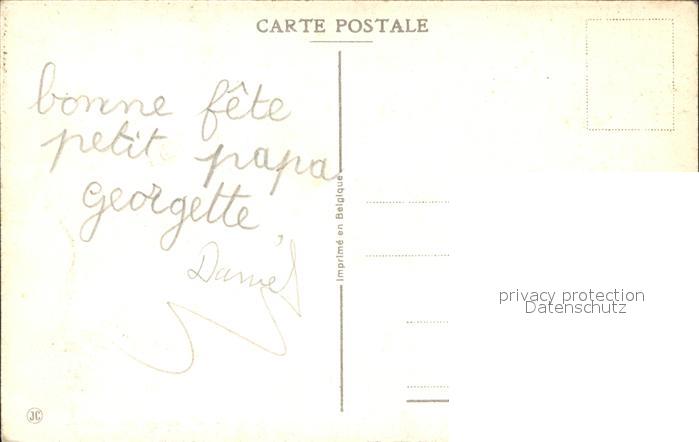 CARTE POSTALE
bonne fête
petit papa
Georgette
Daniel
Imprimé en Belgique
privacy protection
Datenschutz
JC